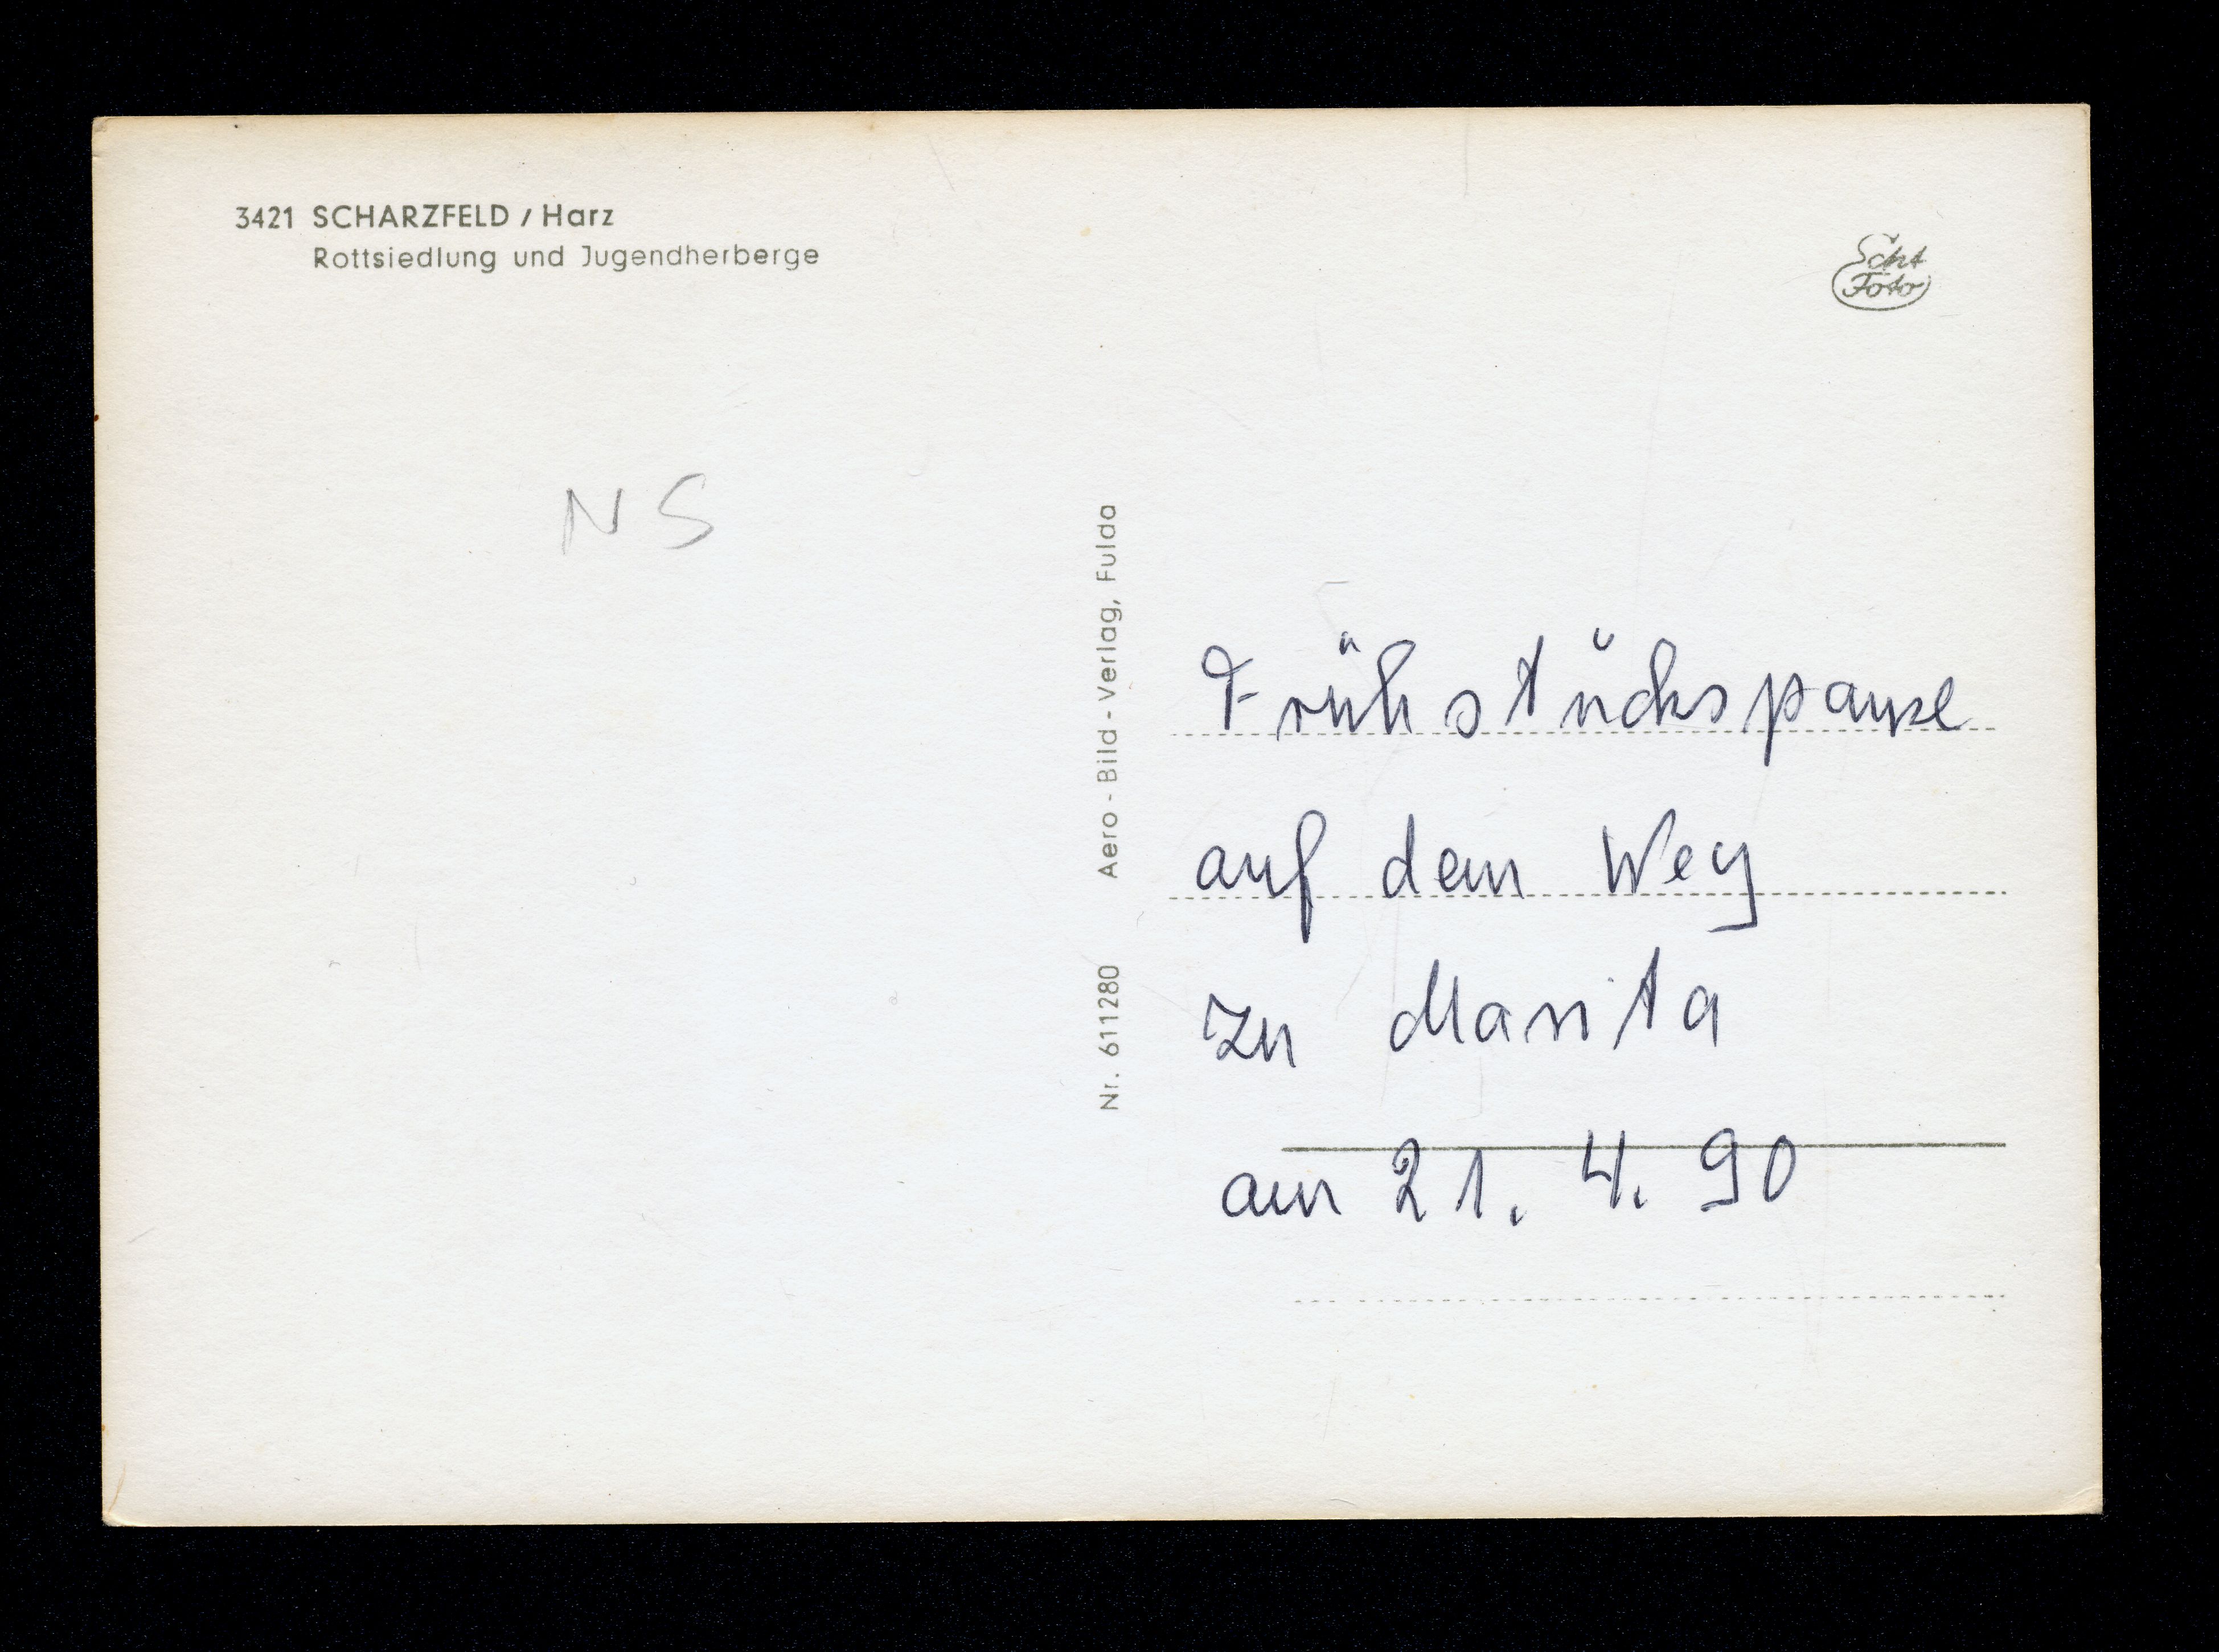 3421 SCHARZFELD / Harz
Rottsiedlung und Jugendherberge
Echt
Foto
N S
Nr. 611280 Aero-Bild-Verlag, Fulda
Frühstückspause
auf dem Weg
zu Marita
am 21. 4. 90